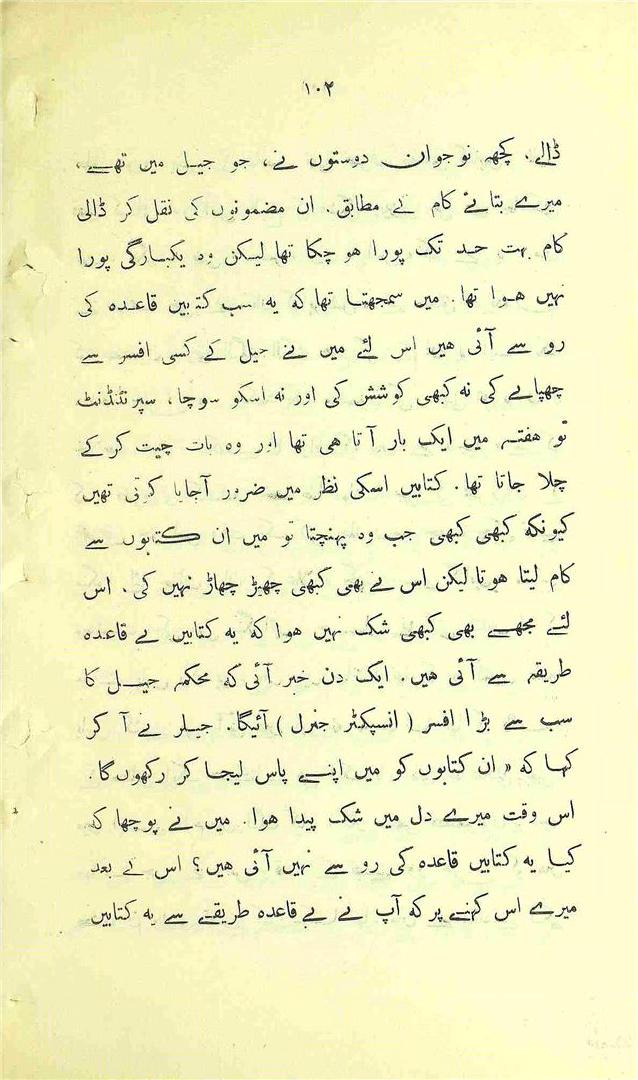 ۱۰۴
ڈالے۔ کچھہ نوجوان دوستوں نے، جو جیل میں تھے،
میرے بتائے کام کے مطابق۔ ان مضمونوں کی نقل کر ڈالی
کام بہت حد تک پورا ہو چکا تھا لیکن وہ یکبارگی پورا
نہیں ہوا تھا۔ میں سمجھتا تھا کہ یہ سب کتابیں قاعدہ کی
رو سے آئی ہیں اس لئے میں نے جیل کے کسی افسر سے
چھپانے کی نہ کبھی کوشش کی اور نہ اسکو سوچا، سپرنٹنڈنٹ
تو ہفتہ میں ایک بار آتا ہی تھا اور وہ بات چیت کر کے
چلا جاتا تھا۔ کتابیں اسکی نظر میں ضرور آجایا کرتی تھیں
کیونکہ کبھی کبھی جب وہ پہنچتا تو میں ان کتابوں سے
کام لیتا ہوتا لیکن اس نے بھی کبھی چھیڑ چھاڑ نہیں کی۔ اس
لئے مجھے بھی کبھی شک نہیں ہوا کہ یہ کتابیں بے قاعدہ
طریقہ سے آئی ہیں۔ ایک دن خبر آئی کہ محکمہ جیل کا
سب سے بڑا افسر (انسپکٹر جنرل) آئیگا۔ جیلر نے آ کر
کہا کہ « ان کتابوں کو میں اپنے پاس لیجا کر رکھوں گا۔
اس وقت میرے دل میں شک پیدا ہوا۔ میں نے پوچھا کہ
کیا یہ کتابیں قاعدہ کی رو سے نہیں آئی ہیں؟ اس کے بعد
میرے اس کہنے پر کہ آپ نے بے قاعدہ طریقے سے یہ کتابیں